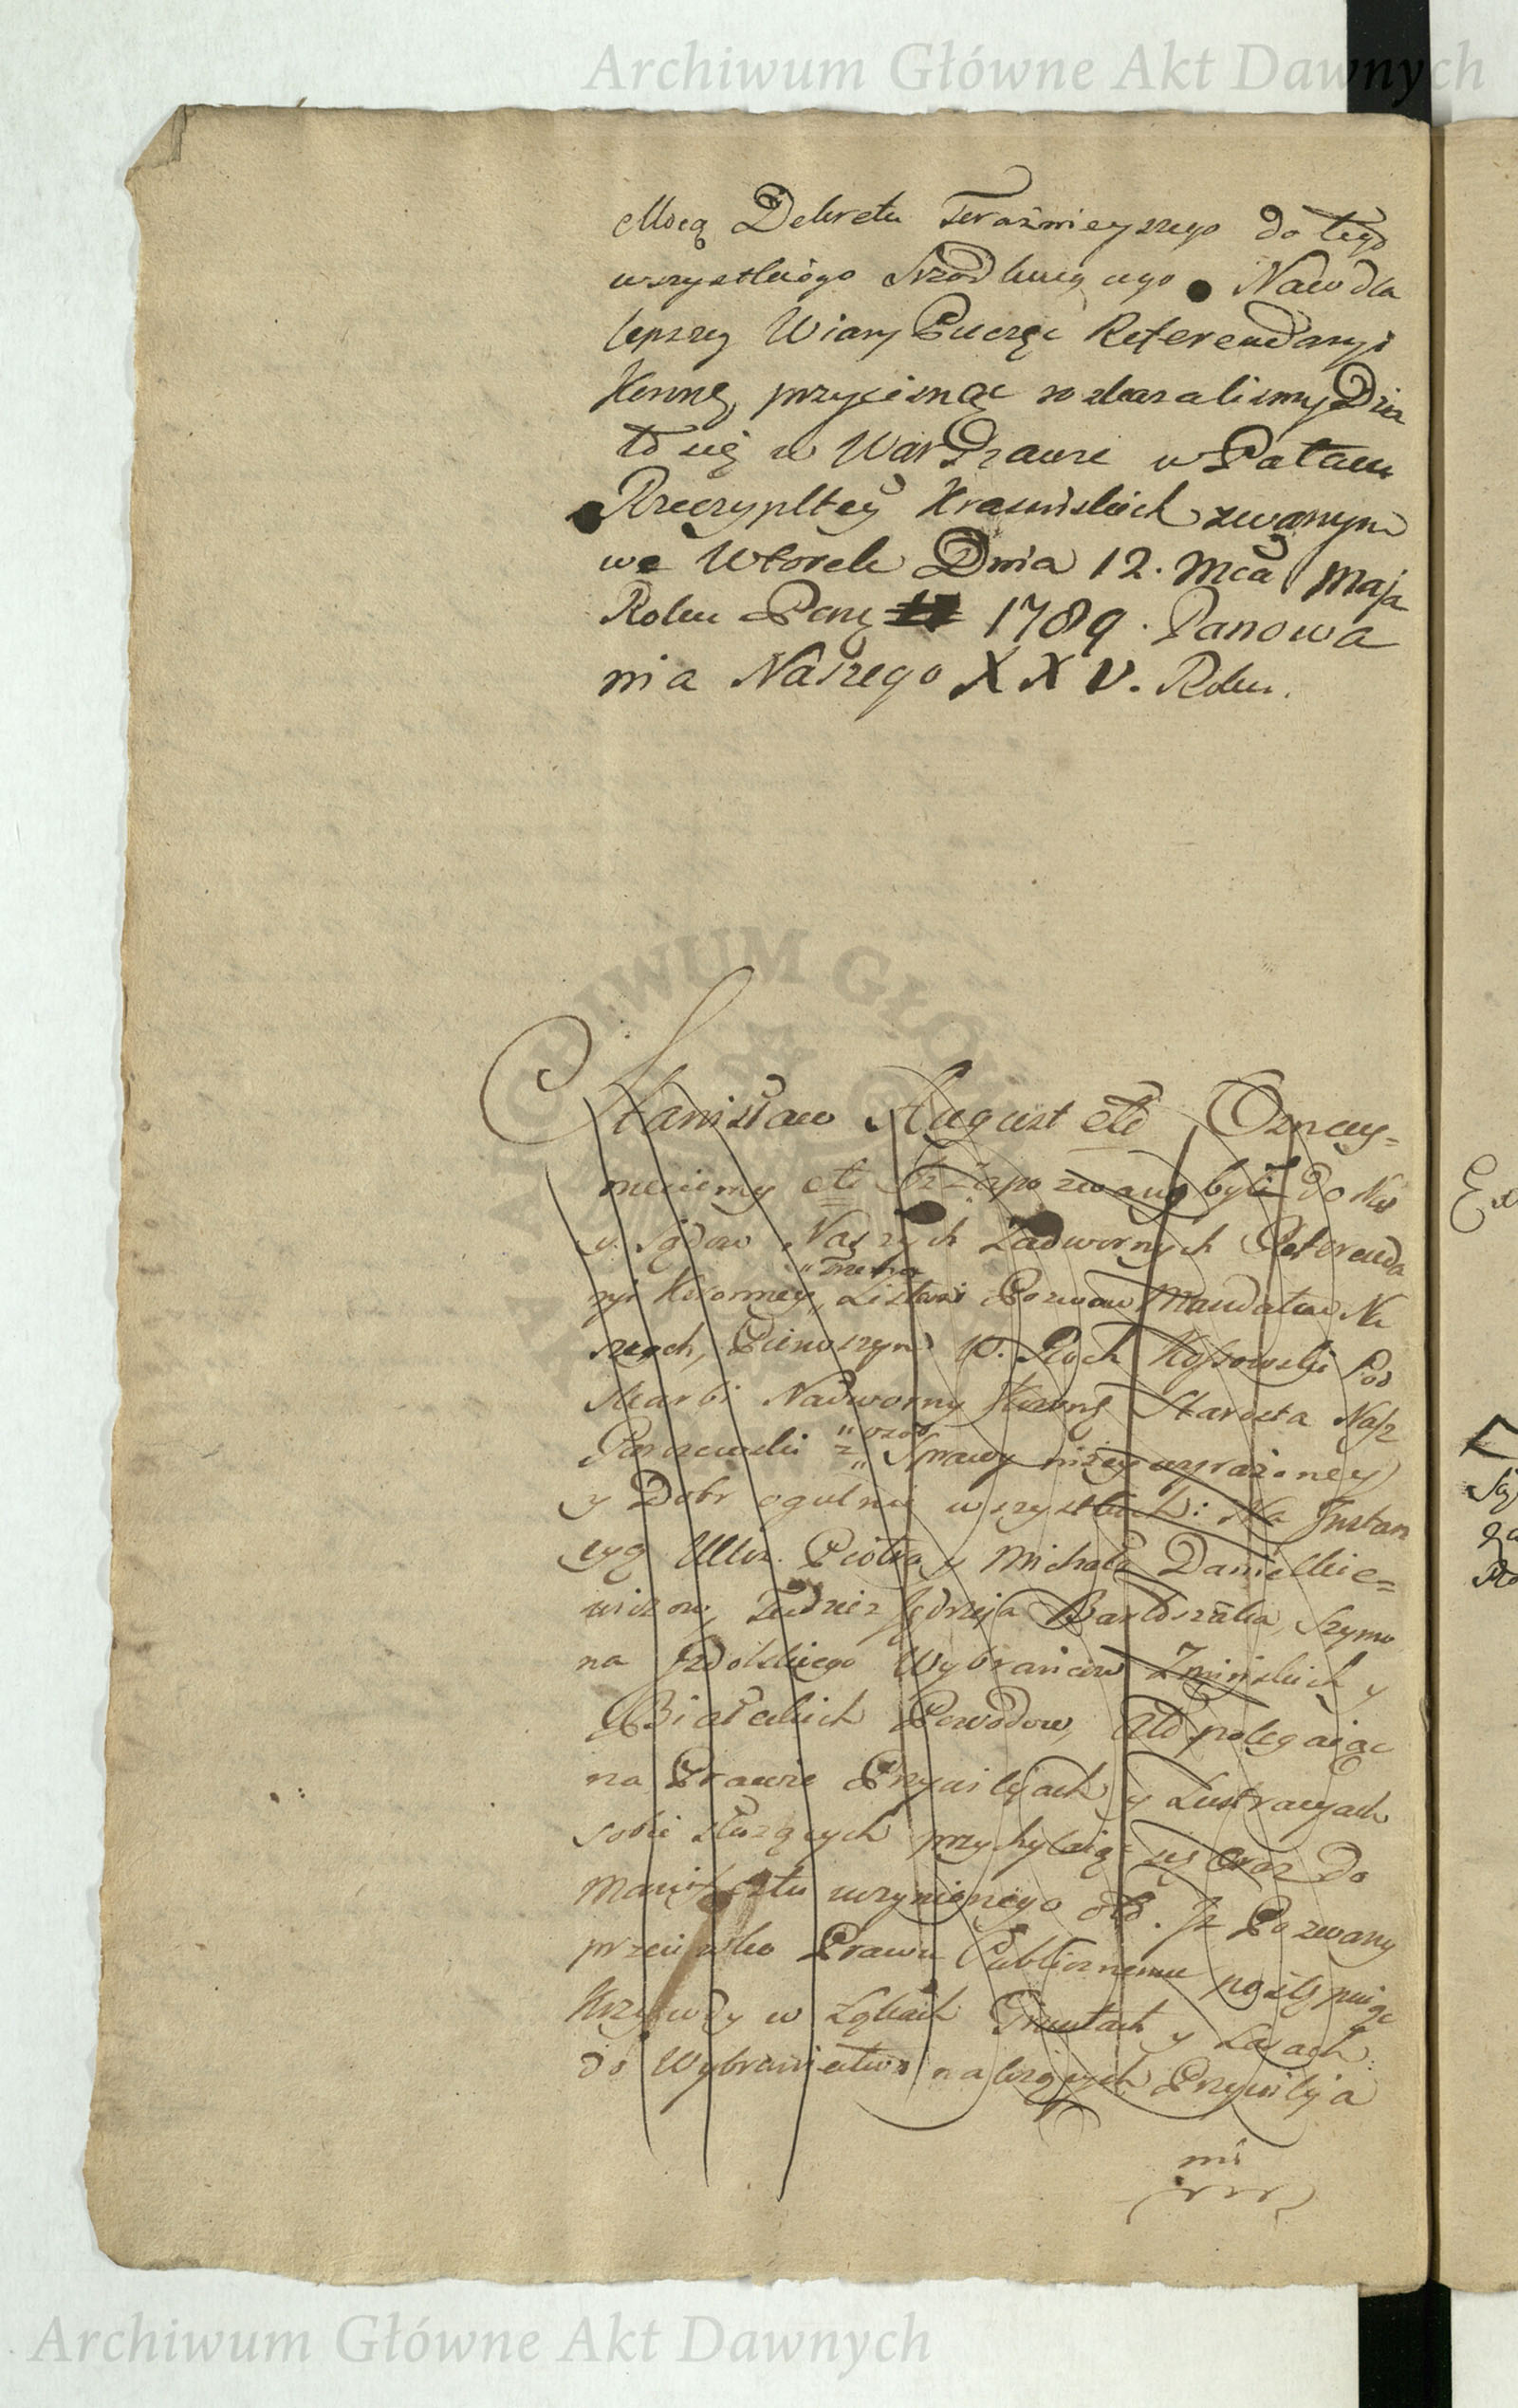 Archiwum Główne Akt Dawnych
Mocą Dekretu Teraźnieyszego do tego
wszystkiego Srzodkuiącego Na co dla
lepszey Wiary Pieczęć Referendaryi
Konneÿ przycisnąc rozkazalismy Dzia
ło się w Warszawie w Pałacu
Rzeczypltey Krasinskich zwanym
we Wtorek Dnia 12. Mca Maja
Roku Pang 1789. Panowa
nia Naszego XXV. Roku.
Stanisław August etc Oznay=
muiemy etc Iż Zapozwany był do Nas
y Sądow Naszych Zadwornych Referenda
ryi Koronney „Trzema Listami Pozwow Mandatow Na
szych, Pierwszym W. Roch Kossowski Pod
skarbi Nadworny Koronny Starosta
z „osob „ Sprawy niżey wyrażoney
y Dobr ogulnie wszystkich: Na Instan
cyą Uttw. Piotra y Michała Danielkie=
wiczow, Tudzież Jędrzeja Bartoszaka, Szymo
na Wybrańcow Zminskich y
Białeckich Powodow, Ato polegaiąc
na Prawie Przywilejach y Lustracyach
sobie służących przychylaiąc się oraz do
Manifestu uczynionego oto. Iż Pozwany
przeciwko Prawu Publicznemu postępuiąc
Krzywdy w Łąkach Gruntach y Lasach
do Wybraniectwa należących Przywileja
mi
Archiwum Główne Akt Dawnych